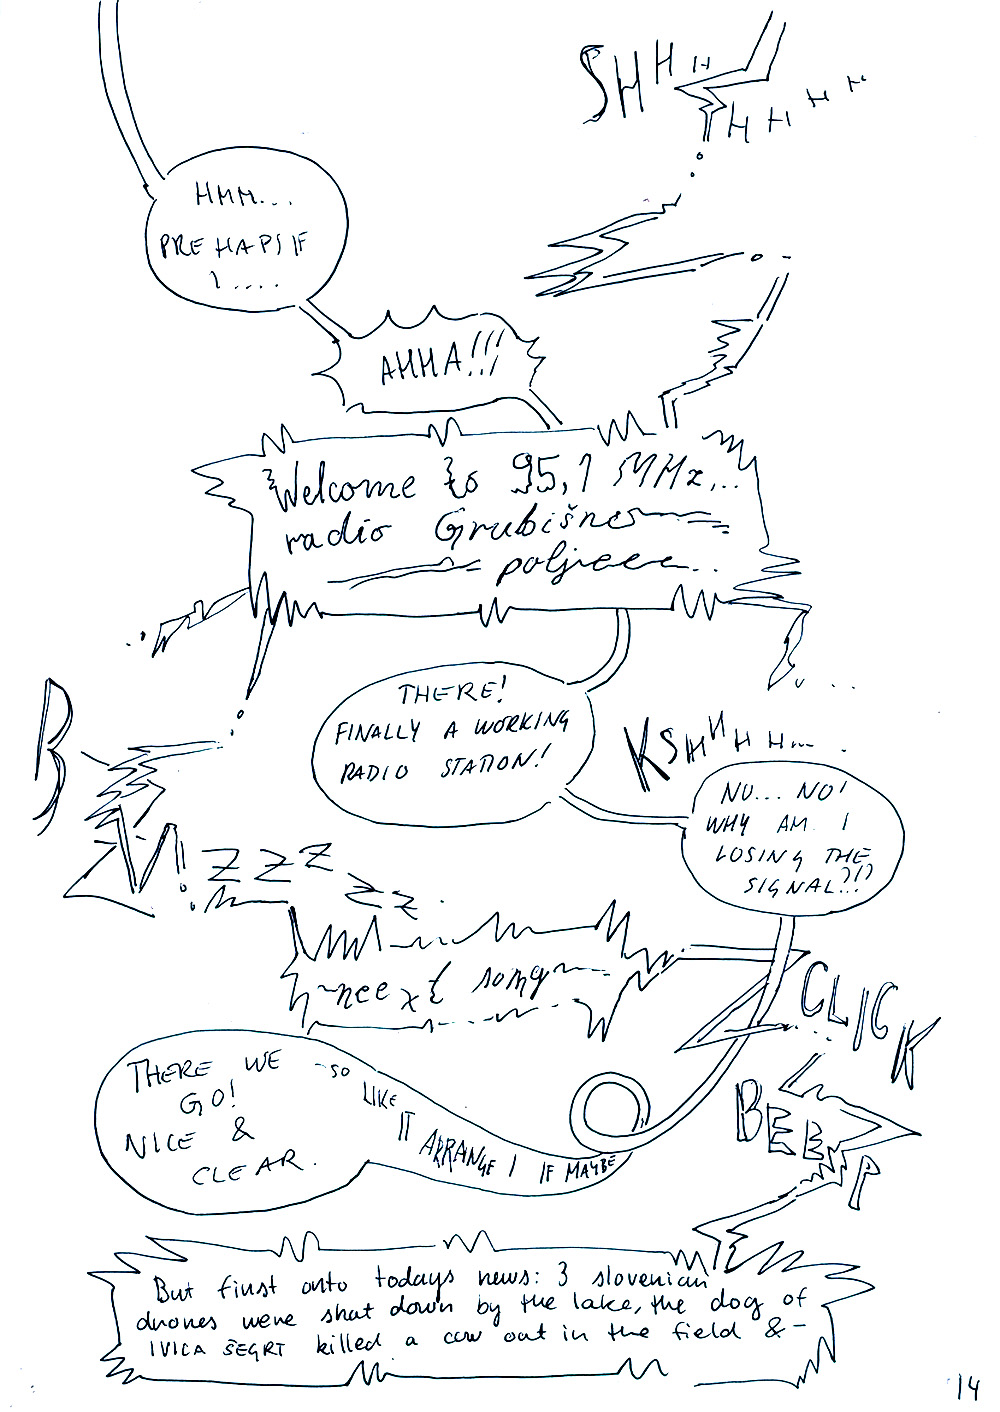 SHHH
HHHH
HMM...
PREHAPS IF
I ....
AHHA!!!
Welcome to 95,1 MHz...
radio Grubišnes
poljaeee...
THERE!
FINALLY A WORKING
RADIO STATION!
KSHHHHH...
NO... NO!
WHY AM I
LOSING THE
SIGNAL?!?
BVI!ZZZZZ
-neext song
CLICK
BEEEP
IF MAYBE
I ARRANGE
IT
LIKE
SO-
THERE WE
GO!
NICE &
CLEAR.
But first onto todays news: 3 slovenian
drones were shot down by the lake, the dog of
IVICA ŠEGRT killed a cow out in the field &-
14